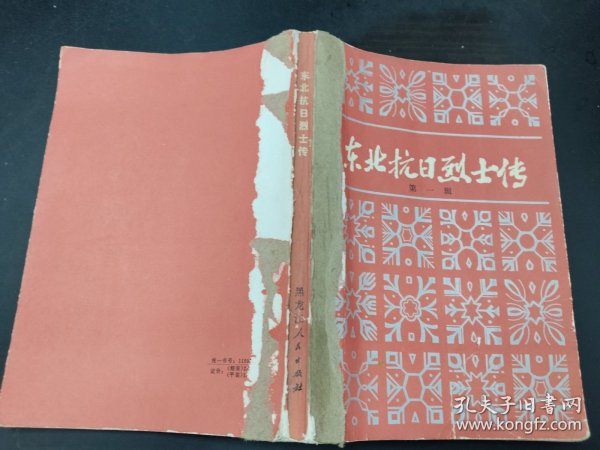 东北抗日烈士传
第一辑
东北抗日烈士传
黑龙江人民出版社
统一书号：110
定价：
孔夫子旧书网
www.kongfz.com